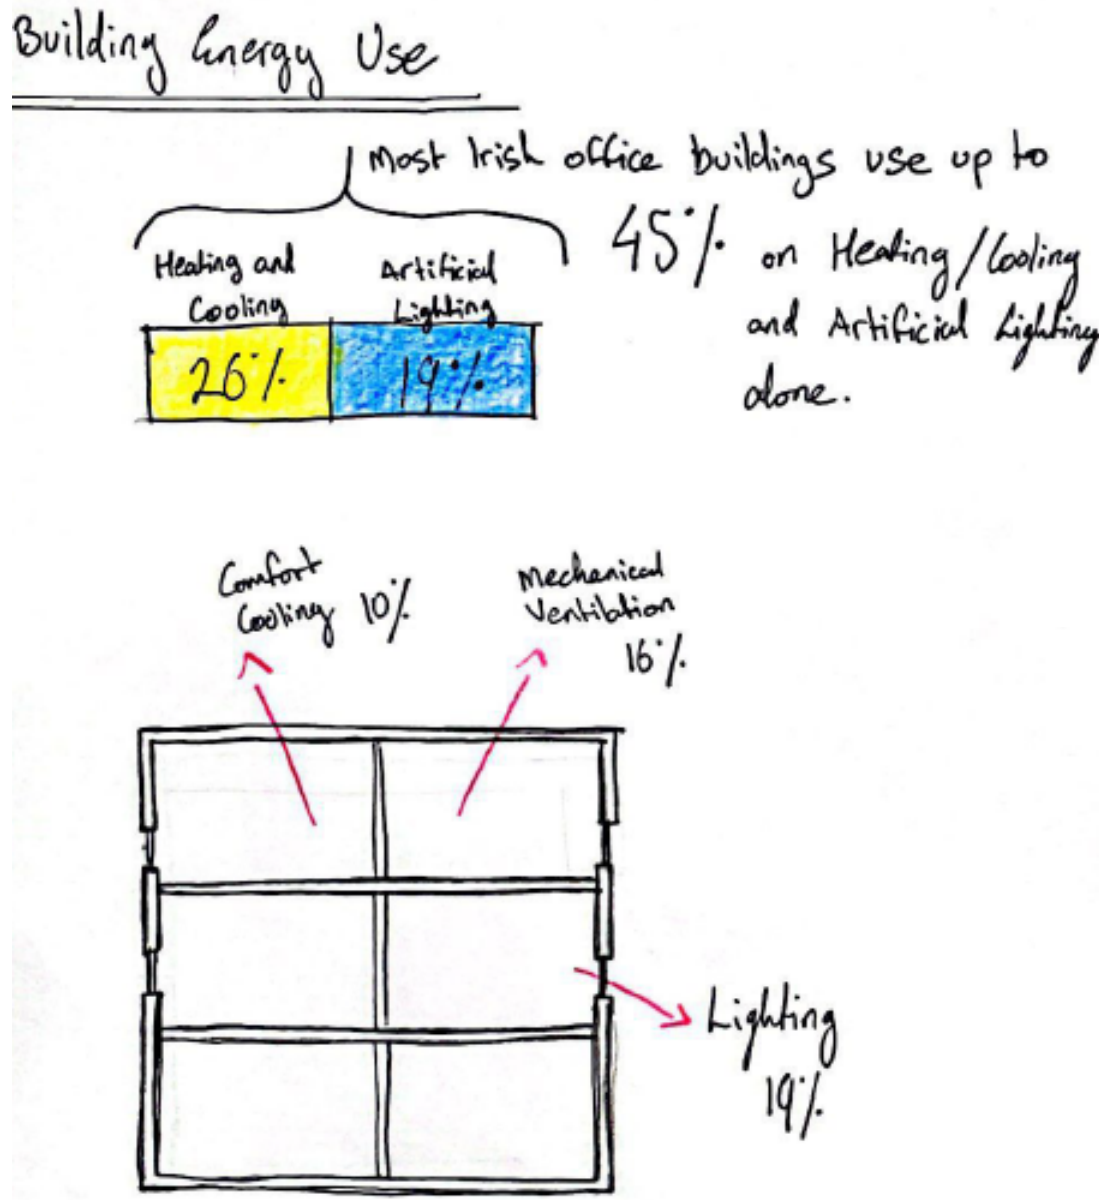 Building Energy Use
Most Irish office buildings use up to
45% on Heating/Cooling
and Artificial Lighting
alone.
Heating and
Cooling
26%
Artificial
Lighting
19%
Comfort
Cooling 10%
Mechanical
Ventilation
16%
Lighting
19%